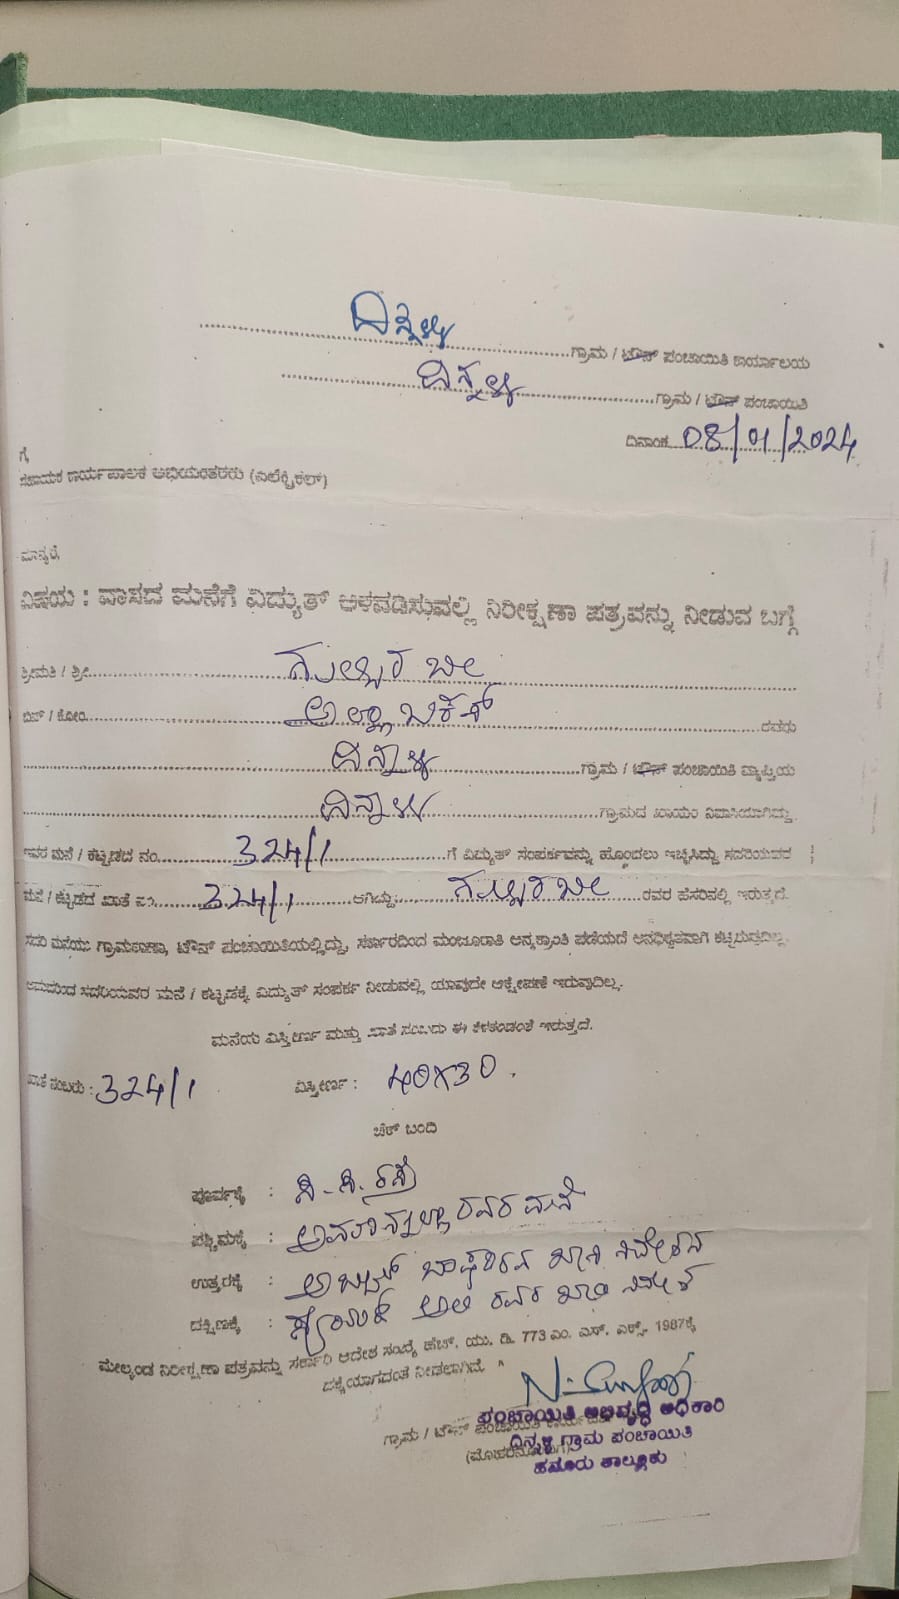 ದಿನ್ನಳ್ಳಿ ಗ್ರಾಮ / ಟೌನ್ ಪಂಚಾಯಿತಿ ಕಾರ್ಯಾಲಯ
ದಿನ್ನಳ್ಳಿ ಗ್ರಾಮ / ಟೌನ್ ಪಂಚಾಯಿತಿ
ದಿನಾಂಕ 08/01/2024
ಗೆ,
ಸಹಾಯಕ ಕಾರ್ಯಪಾಲಕ ಅಭಿಯಂತರರು (ಎಲೆಕ್ಟ್ರಿಕಲ್)
ಮಾನ್ಯರೆ,
ವಿಷಯ : ವಾಸದ ಮನೆಗೆ ವಿದ್ಯುತ್ ಅಳವಡಿಸುವಲ್ಲಿ ನಿರೀಕ್ಷಣಾ ಪತ್ರವನ್ನು ನೀಡುವ ಬಗ್ಗೆ
ಶ್ರೀಮತಿ / ಶ್ರೀ ಬೀ
ಬಿನ್ / ಕೋಂ ಅಲ್ಲಾ ಬಕಷ್ ರವರು
ಗ್ರಾಮ / ಟೌನ್ ಪಂಚಾಯಿತಿ ವ್ಯಾಪ್ತಿಯ
ಗ್ರಾಮದ ಖಾಯಂ ನಿವಾಸಿಯಾಗಿದ್ದು
ಇವರ ಮನೆ / ಕಟ್ಟಡದ ನಂ. 324/1 ಗೆ ವಿದ್ಯುತ್ ಸಂಪರ್ಕವನ್ನು ಹೊಂದಲು ಇಚ್ಛಿಸಿದ್ದು ಸದರಿಯವರ
ಮನೆ / ಕಟ್ಟಡದ ಖಾತೆ ನಂ 324/1 ಆಗಿದ್ದು ಬೀ ರವರ ಹೆಸರಿನಲ್ಲಿ ಇರುತ್ತದೆ.
ಸದರಿ ಮನೆಯು ಗ್ರಾಮಠಾಣಾ, ಟೌನ್ ಪಂಚಾಯಿತಿಯಲ್ಲಿದ್ದು, ಸರ್ಕಾರದಿಂದ ಮಂಜೂರಾತಿ ಅನ್ಯಕ್ರಾಂತಿ ಪಡೆಯದೆ ಅನಧಿಕೃತವಾಗಿ ಕಟ್ಟಿರುವುದಿಲ್ಲ.
ಆದುದರಿಂದ ಸದರಿಯವರ ಮನೆ / ಕಟ್ಟಡಕ್ಕೆ ವಿದ್ಯುತ್ ಸಂಪರ್ಕ ನೀಡುವಲ್ಲಿ ಯಾವುದೇ ಆಕ್ಷೇಪಣೆ ಇರುವುದಿಲ್ಲ.
ಮನೆಯ ವಿಸ್ತೀರ್ಣ ಮತ್ತು ಖಾತೆ ನಂಬರು ಈ ಕೆಳಕಂಡಂತೆ ಇರುತ್ತದೆ.
ಖಾತೆ ನಂಬರು : 324/1 ವಿಸ್ತೀರ್ಣ : 40X30.
ಚೆಕ್ ಬಂದಿ
ಪೂರ್ವಕ್ಕೆ : ಸಿ.ಸಿ. ರಸ್ತೆ
ಪಶ್ಚಿಮಕ್ಕೆ : ರವರ ಮನೆ
ಉತ್ತರಕ್ಕೆ : ಖಾಲಿ ನಿವೇಶನ
ದಕ್ಷಿಣಕ್ಕೆ : ಅಲಿ ರವರ ಖಾಲಿ ನಿವೇಶನ
ಮೇಲ್ಕಂಡ ನಿರೀಕ್ಷಣಾ ಪತ್ರವನ್ನು ಸರ್ಕಾರಿ ಆದೇಶ ಸಂಖ್ಯೆ ಹೆಚ್. ಯು. ಡಿ. 773 ಎಂ. ಎಸ್. ಎಕ್ಸ್. 1987ಕ್ಕೆ
ನೀಡಲಾಗಿದೆ.
ಗ್ರಾಮ / ಟೌನ್ ಪಂಚಾಯಿತಿ
ಪಂಚಾಯಿತಿ ಅಭಿವೃದ್ಧಿ ಅಧಿಕಾರಿ
ದಿನ್ನಳ್ಳಿ ಗ್ರಾಮ ಪಂಚಾಯಿತಿ
ತಾಲ್ಲೂಕು